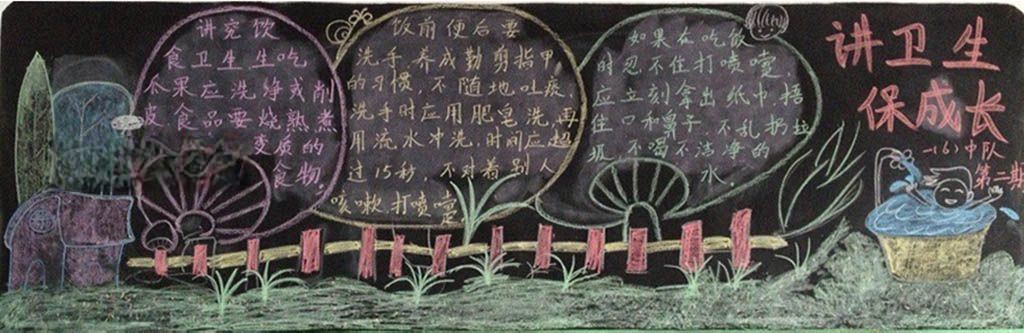 讲究饮
食卫生生吃
瓜果应洗净或削
皮食品要烧熟煮
变质的
食物。
饭前便后要
洗手养成勤剪指甲
的习惯,不随地吐痰,
洗手时应用肥皂洗,再
用流水冲洗,时间应超
过15秒,不对着别人
咳嗽打喷嚏
如果在吃饭
时忍不住打喷嚏,
应立刻拿出纸巾,捂
住口和鼻子,不乱扔垃
圾不喝不洁净的
水。
讲卫生
保成长
一(6)中队
第二期